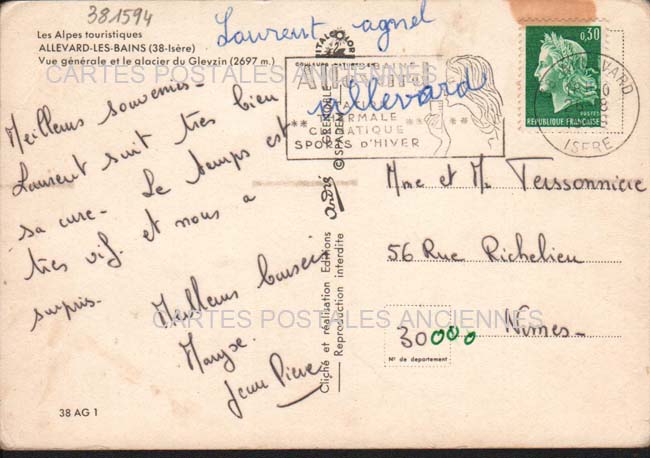 381594
Les Alpes touristiques
ALLEVARD-LES-BAINS (38-Isère)
Vue générale et le glacier du Gleyzin (2697 m.)
Laurent agnel
allevard
THERMALE
CLIMATIQUE
SPORTS d'HIVER
0,30
POSTES
REPUBLIQUE FRANÇAISE
ALLEVARD
ISERE
CARTES POSTALES ANCIENNES
Meilleurs souvenirs.
Laurent suit très bien
sa cure. Le temps est
très vif. et nous a
surpris.
Meilleurs baisers
Maryse
Jean Pierre
GRENOBLE
© SPADEM
André
Cliché et réalisation Editions
Reproduction interdite
Mme et Mr Teissonniere
56 Rue Richelieu
30000 Nimes-
N° de département
CARTES POSTALES ANCIENNES
38 AG 1